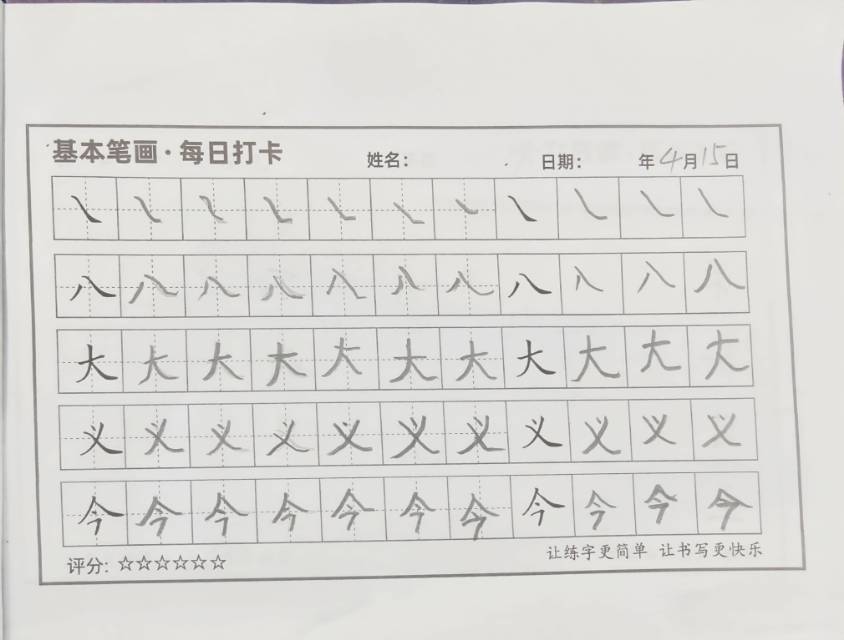 基本笔画·每日打卡 姓名： 日期： 年4月15日
㇏㇏㇏㇏㇏㇏㇏㇏㇏㇏㇏
八八八八八八八八八八八
大大大大大大大大大大大
义义义义义义义义义义义
今今今今今今今今今今今
评分：☆☆☆☆☆☆ 让练字更简单 让书写更快乐